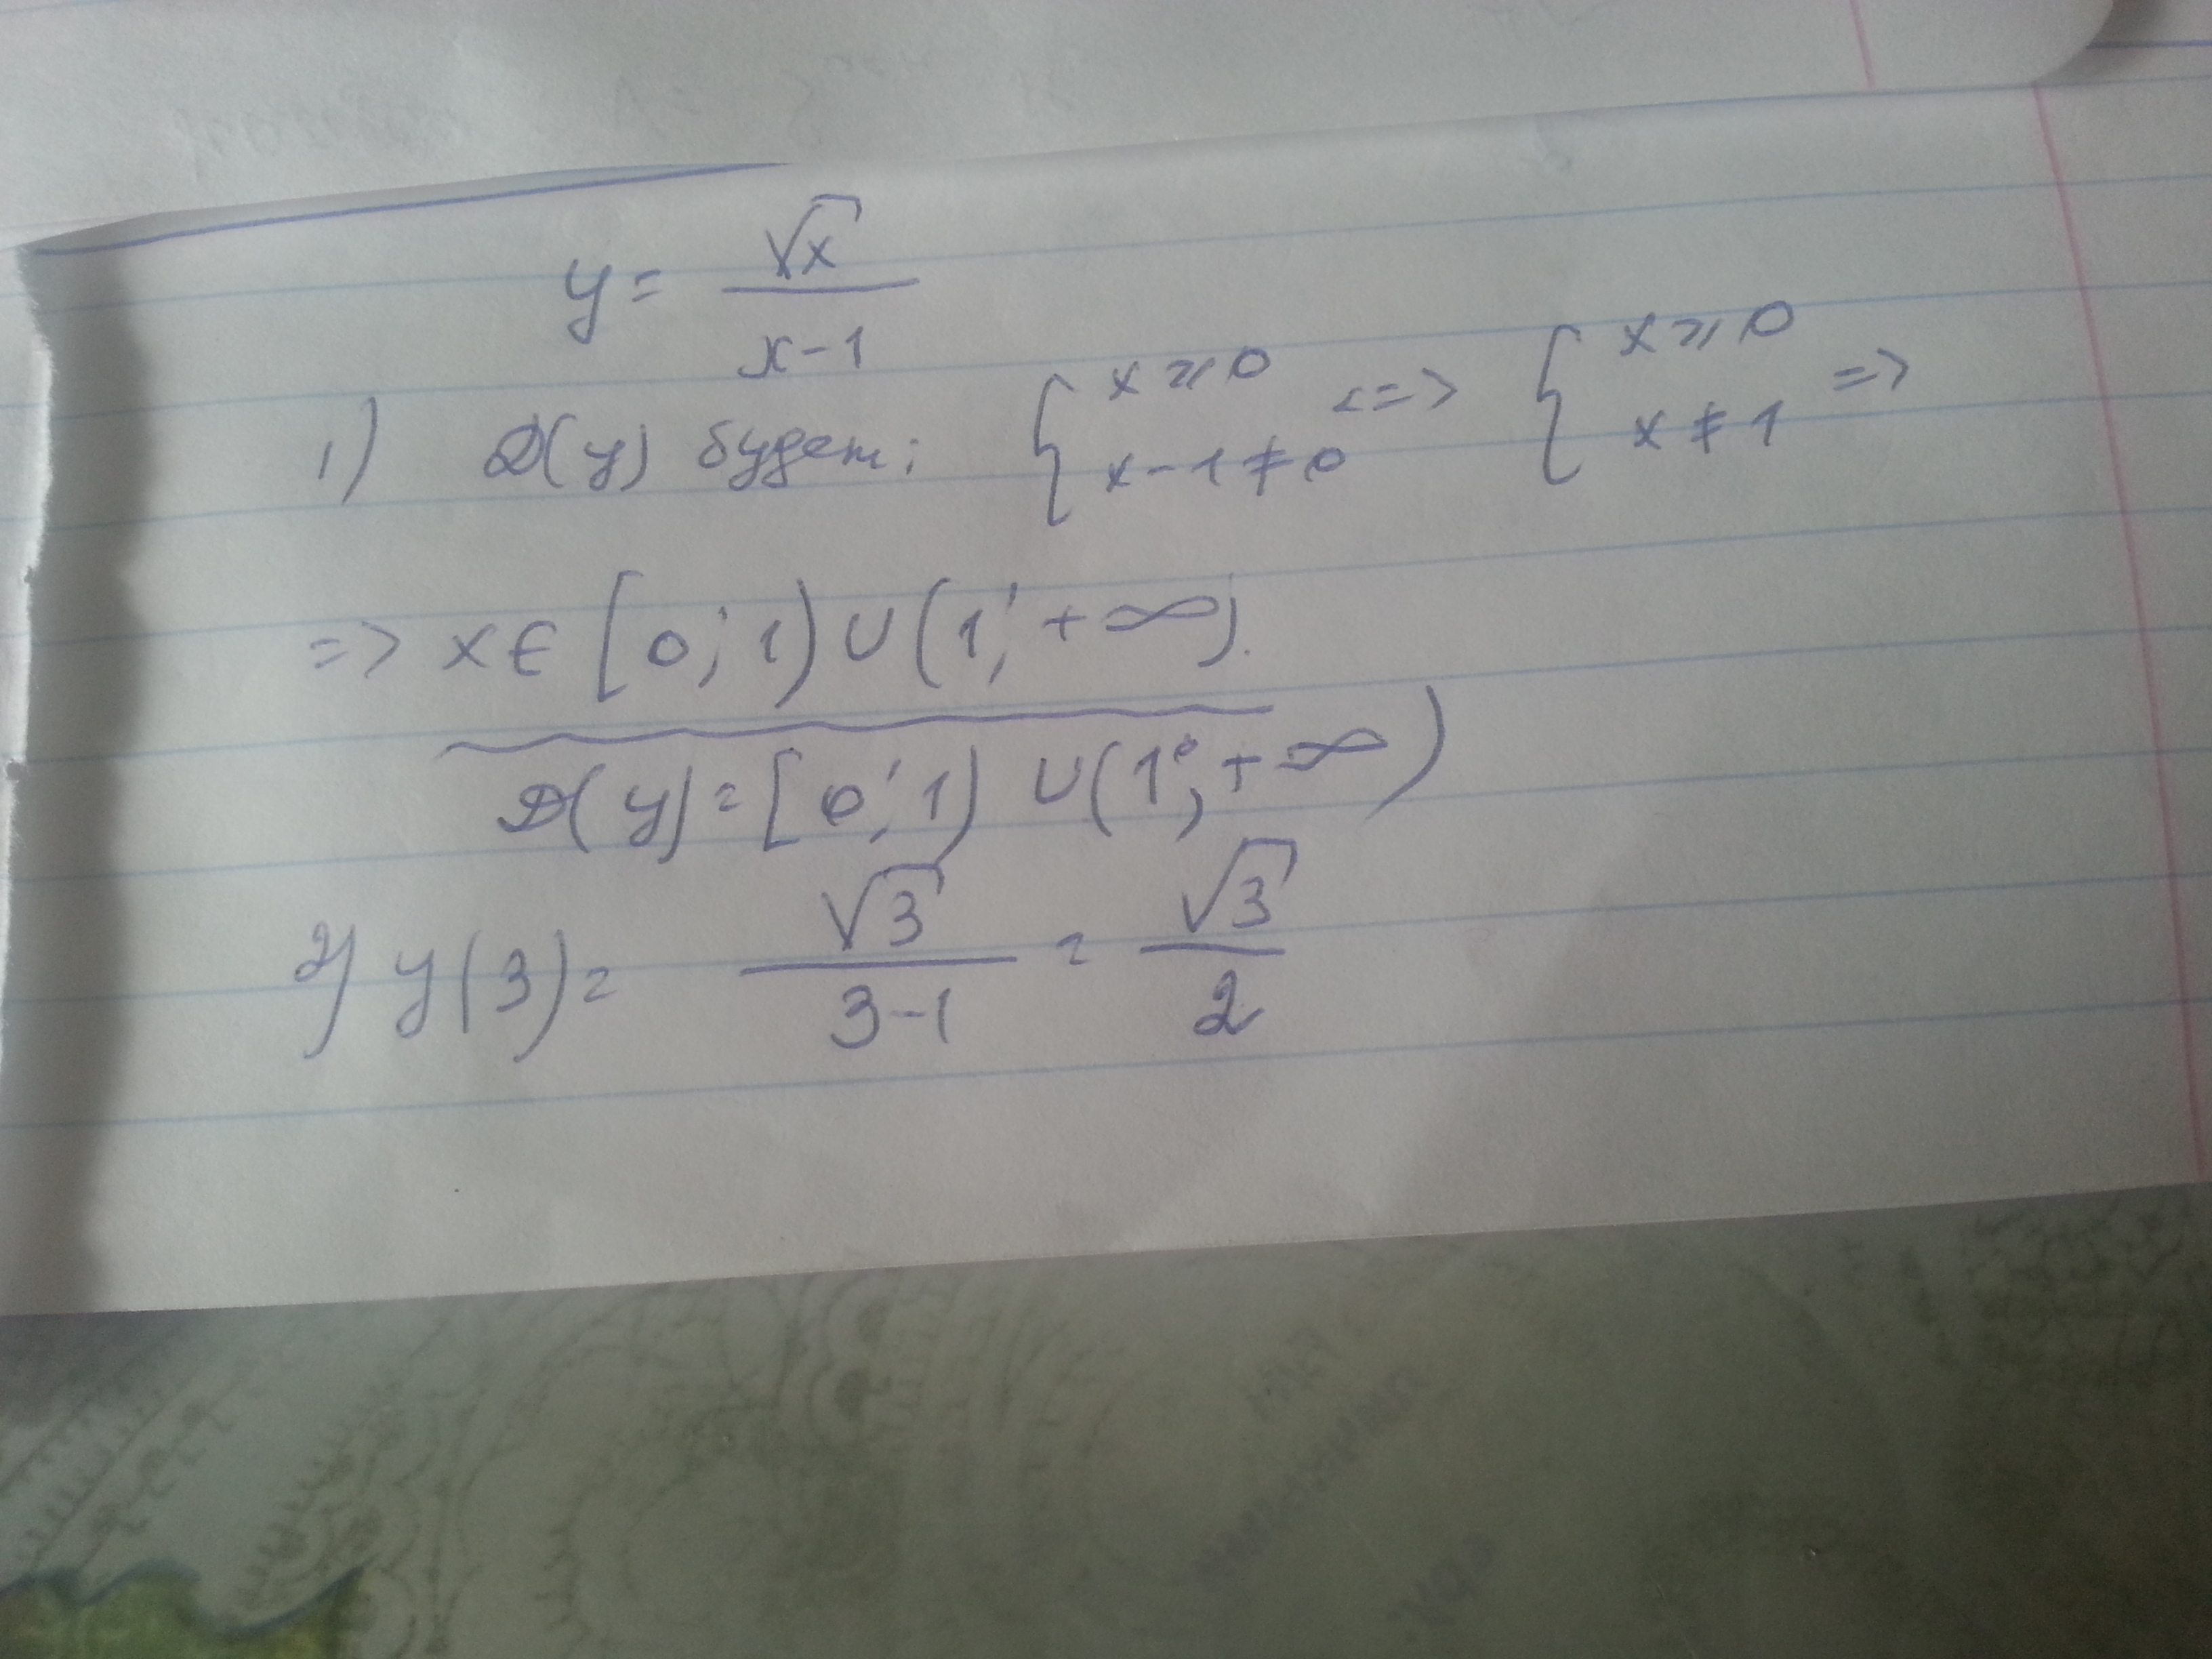 y = √x / x-1
1) D(y) будет: { x ≥ 0 x-1 ≠ 0 <=> { x ≥ 0 x ≠ 1 =>
=> x ∈ [0; 1) ∪ (1; +∞).
D(y) = [0; 1) ∪ (1; +∞)
2) y(3) = √3 / 3-1 = √3 / 2